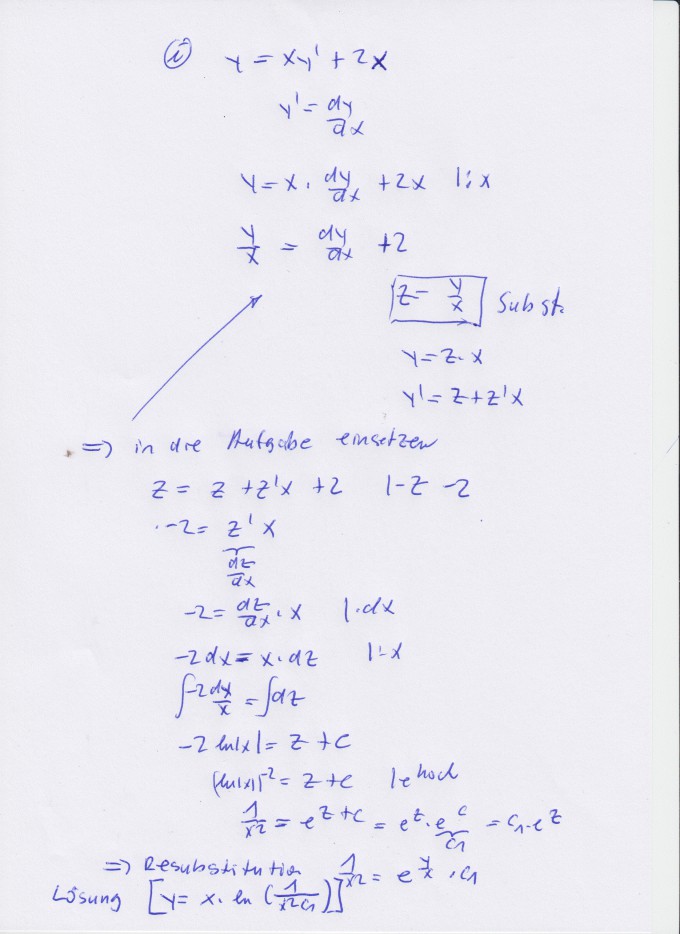 i) y = xy' + 2x
y' = dy/dx
y = x · dy/dx + 2x |:x
y/x = dy/dx + 2
z = y/x Subst.
y = z · x
y' = z + z'x
=> in die Aufgabe einsetzen
z = z + z'x + 2 |-z -2
-2 = z' x
dz/dx
-2 = dz/dx · x |·dx
-2dx = x · dz |:x
∫-2 dx/x = ∫dz
-2 ln|x| = z + c
(ln|x|)^-2 = z + c | e hoch
1/x² = e^(z+c) = e^z · e^c = c₁ · e^z
c₁
=> Resubstitution 1/x² = e^(y/x) · c₁
Lösung [y = x · ln (1/(x²c₁))]